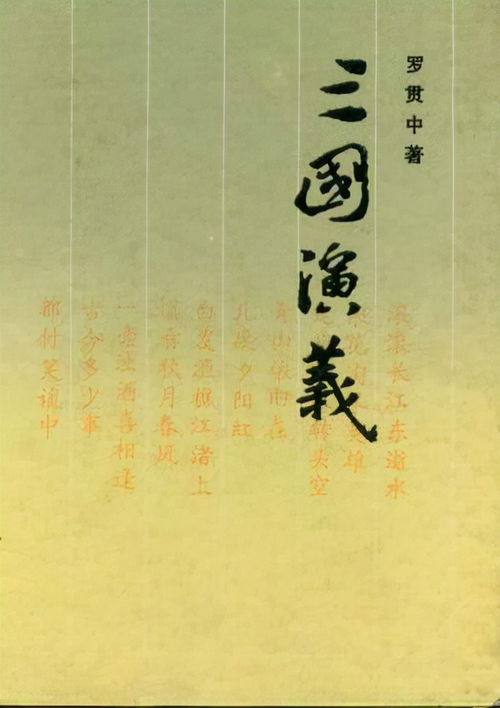 罗贯中著
三國演義
滚滚长江东逝水
浪花 英雄
转头空
青山依旧在
几度夕阳红
白发渔樵江渚上
惯看秋月春风
一壶浊酒喜相逢
古今多少事
都付笑谈中